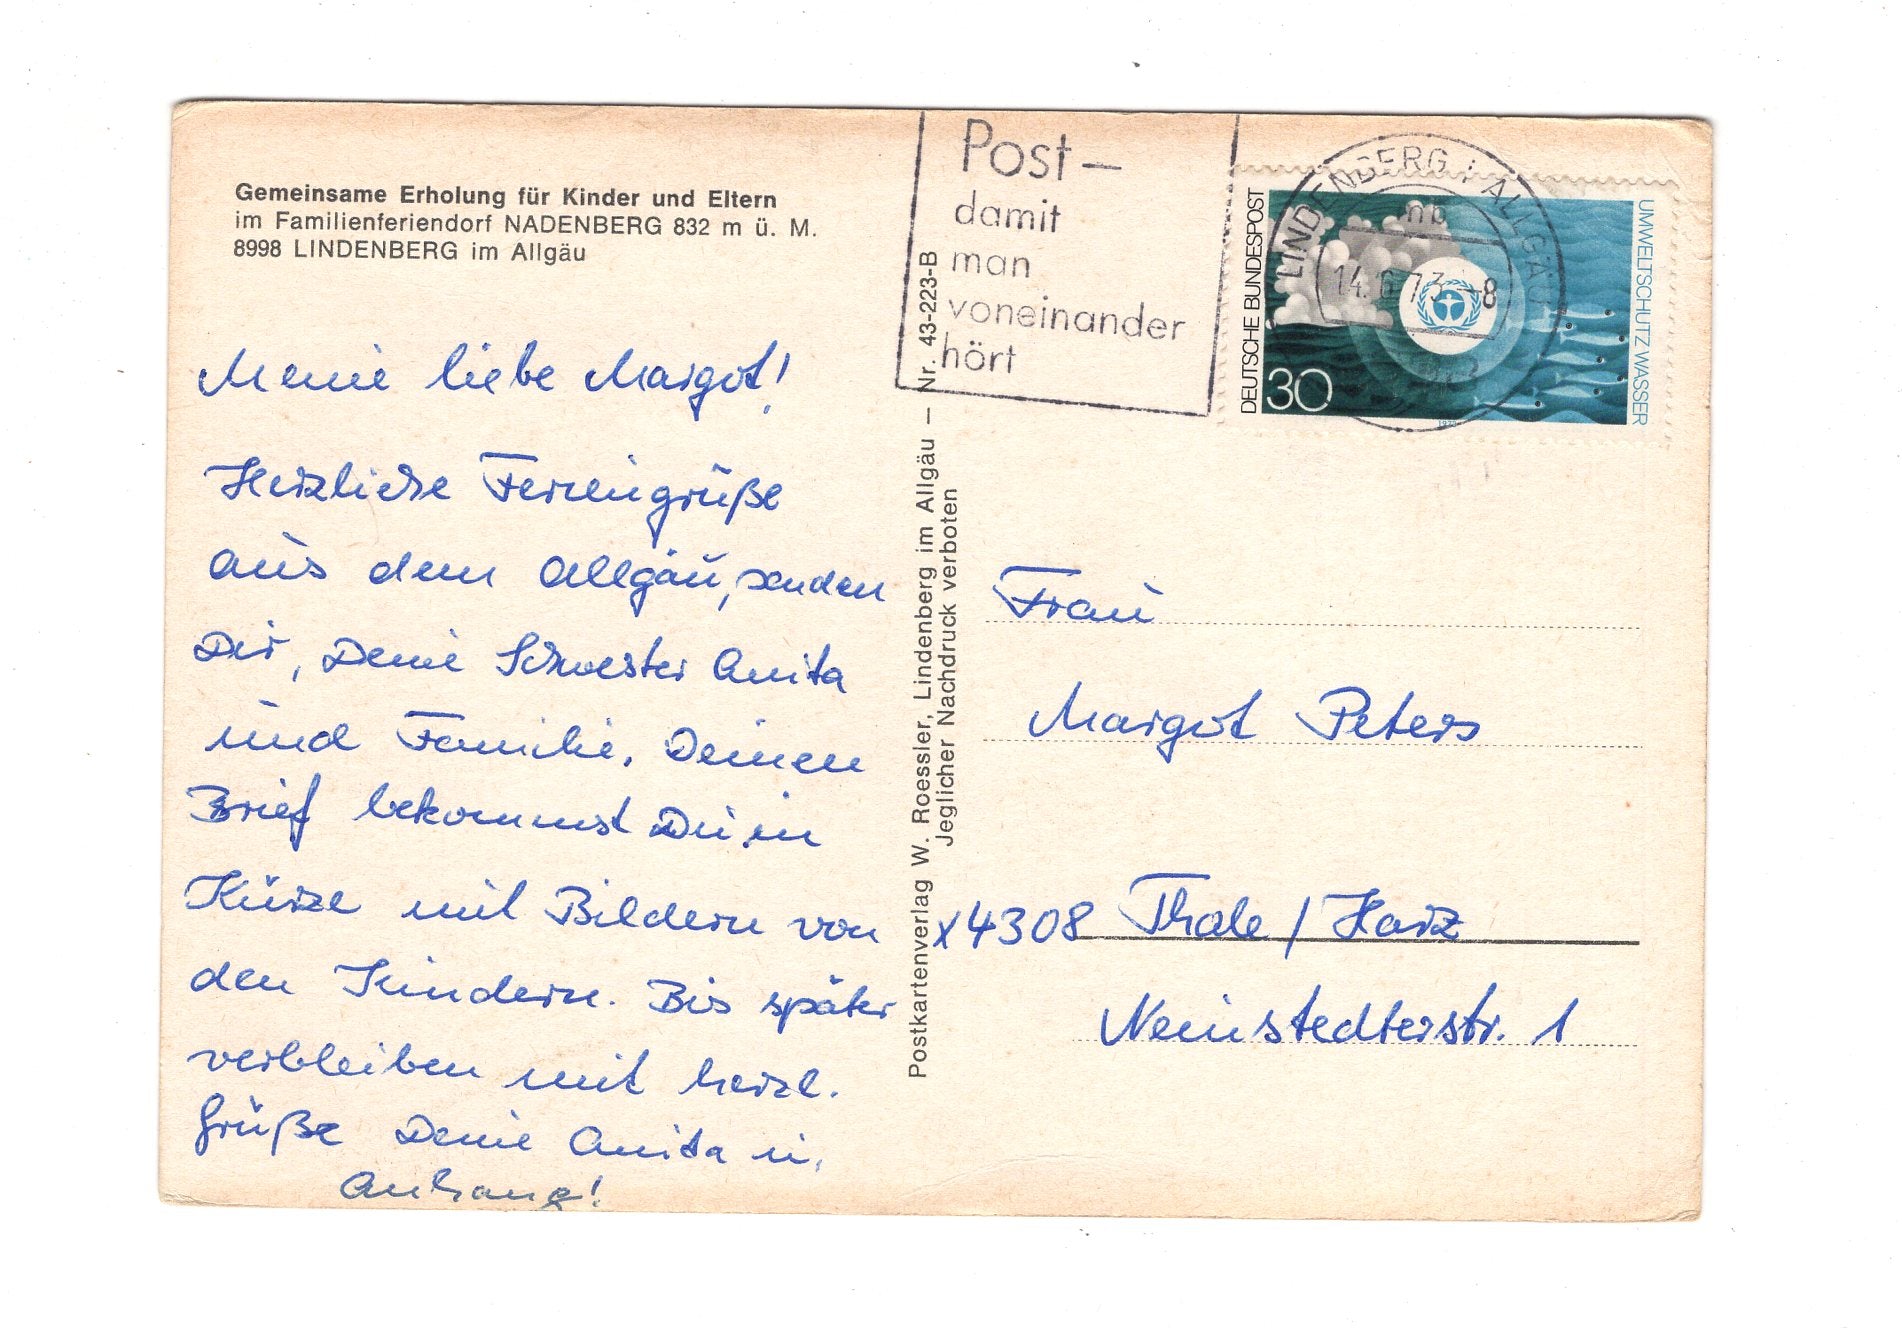 Gemeinsame Erholung für Kinder und Eltern
im Familienferiendorf NADENBERG 832 m ü. M.
8998 LINDENBERG im Allgäu
Meine liebe Margot!
Herzliche Feriengrüße
aus dem Allgäu, senden
Dir, Deine Schwester Anita
und Familie. Deinen
Brief bekommst Du in
Kürze mit Bildern von
den Kindern. Bis später
verbleiben mit herzl.
Grüße Deine Anita u.
Anhang!
Postkartenverlag W. Roessler, Lindenberg im Allgäu — Nr. 43-223-B
Jeglicher Nachdruck verboten
Post –
damit
man
voneinander
hört
LINDENBERG i ALLGÄU
nb
14. 6. 73 - 8
DEUTSCHE BUNDESPOST
30
UMWELTSCHUTZ WASSER
1973
Frau
Margot Peters
x4308 Thale / Harz
Neinstedterstr. 1